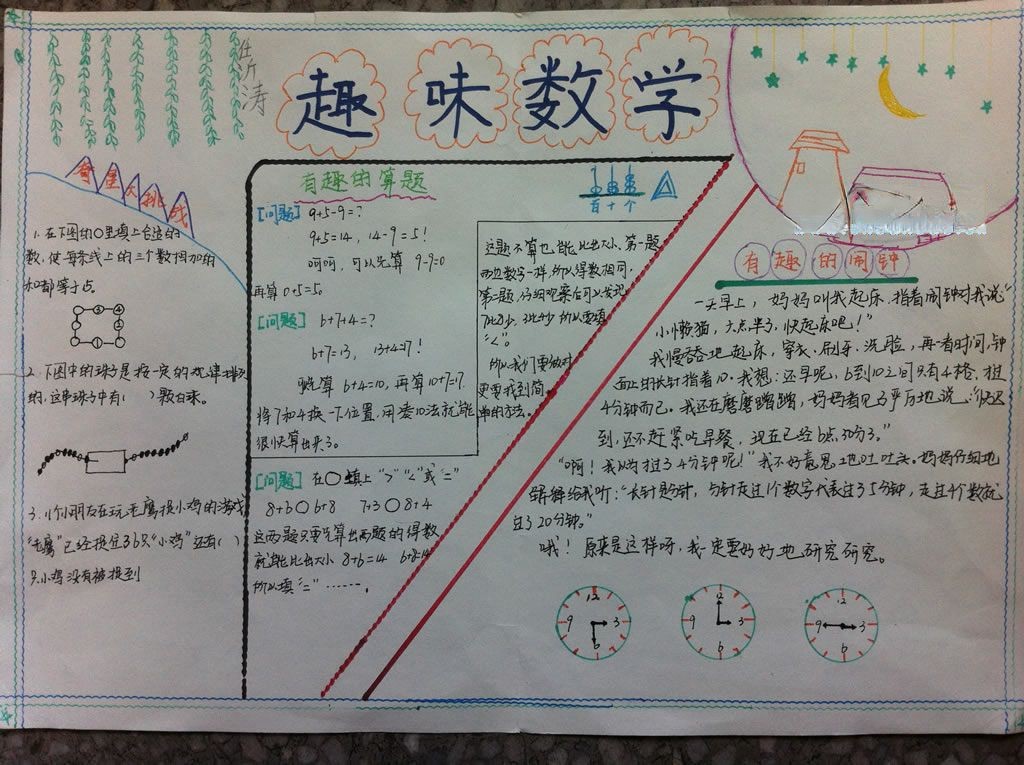 趣味数学
涛
奇星大挑战
1. 在下图的○里填上合适的
数,使每条线上的三个数相加的
和都等于点
2. 下图中的珠子是按一定的规律排列
的,这串珠子中有( )颗白珠。
3. 小朋友在玩老鹰捉小鸡的游戏
"老鹰"已经捉住3 6只"小鸡"还有( )
只小鸡没有被捉到
有趣的算题
[问题] 9+5-9=?
9+5=14, 14-9=5!
呵呵,可以先算 9-9=0
再算 0+5=5。
[问题] 6+7+4=?
6+7=13, 13+4=17!
先算 6+4=10, 再算 10+7=17.
将7和4换一下位置,用凑10法就能
很快算出来了。
[问题] 在○填上 ">" "<" 或 "="
8+6○6+8 7+3○8+4
这两题只要先算出两题的得数
就能比出大小 8+6=14 6+8=14
所以填"="……,
百十个
这题不算也能比出大小,第一题
两边数字一样,所以得数相同,
第二题,仔细观察后可以发现
7比8少,3比4少 所以要填
"<"。
所以我们要做对
更要找到简
单的方法。
有趣的闹钟
一天早上,妈妈叫我起床,指着闹钟对我说"
小懒猫,六点半了,快起床吧!"
我慢吞吞地起床,穿衣、刷牙、洗脸,再一看时间,钟
面上的长针指着10。我想:还早呢,6到10之间只有4格,才过
4分钟而已。我还在磨磨蹭蹭,妈妈看见了严厉地说:"快迟
到,还不赶紧吃早餐,现在已经6点50分了。"
"啊!我以为才过了4分钟呢!"我不好意思地吐吐舌。妈妈仔细地
解释给我听:"长针是分针,分针走过1个数字代表过了5分钟,走过4个数就
过了20分钟。"
哦!原来是这样呀,我一定要好好地研究研究。
12 3 6 9
12 3 6 9
12 3 6 9